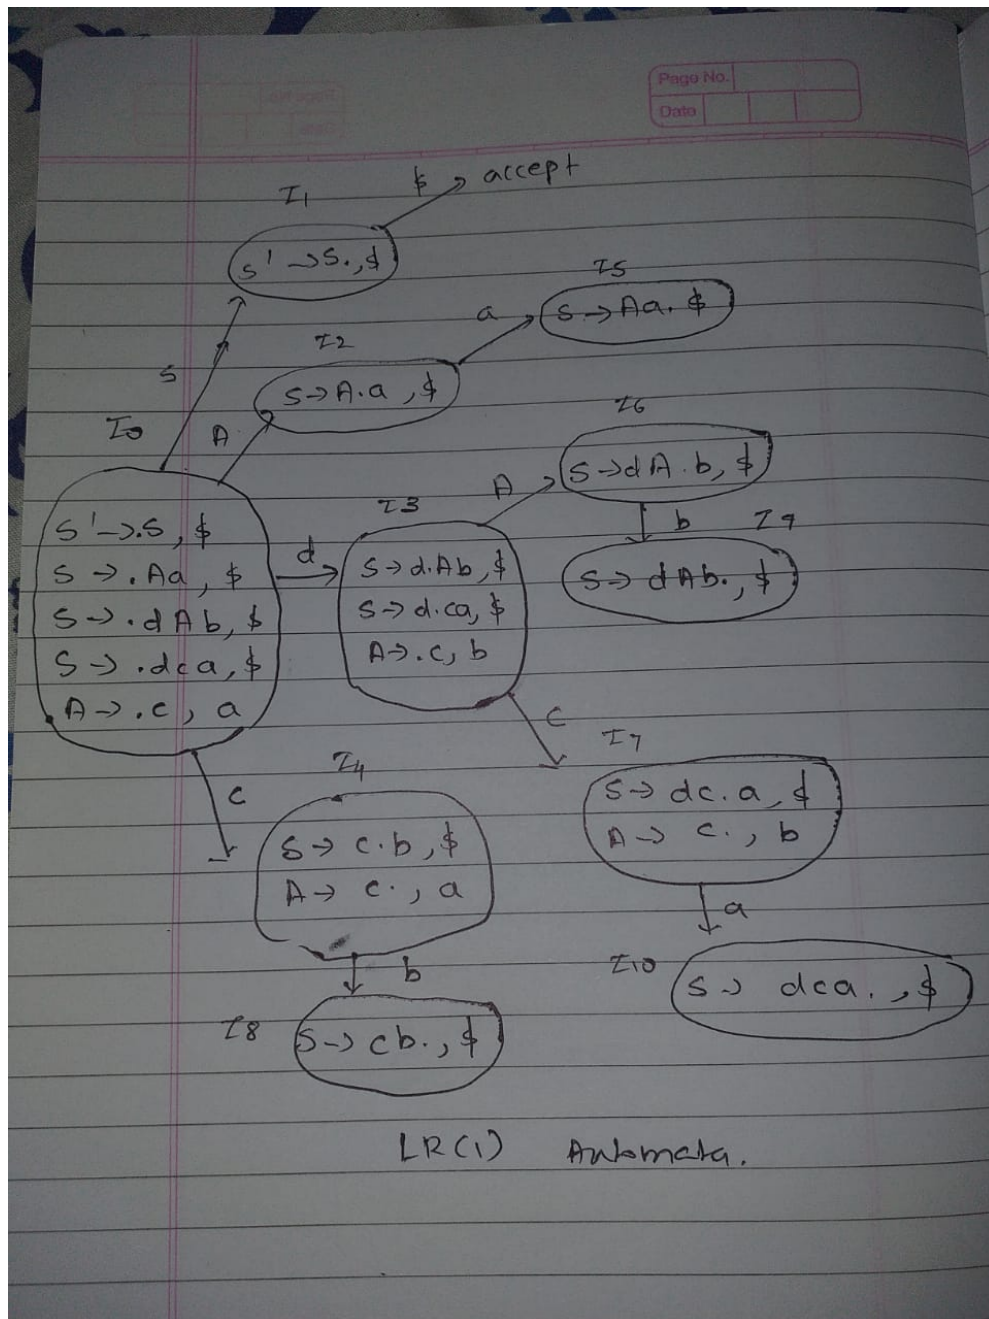 Page No.
Date
I1
$ accept
S' → S., $
I5
a
S → Aa. $
I2
S
S → A.a , $
I0
A
I6
A
S → dA.b, $
I3
b I9
S' → .S, $
S → .Aa, $
S → .dAb, $
S → .dca, $
A → .c, a
d
S → d.Ab, $
S → d.ca, $
A → .c, b
S → dAb., $
c
I7
c
I4
S → dc.a, $
A → c., b
S → c.b, $
A → c., a
a
b
I10
S → dca., $
I8
S → cb., $
LR(1) Automata.